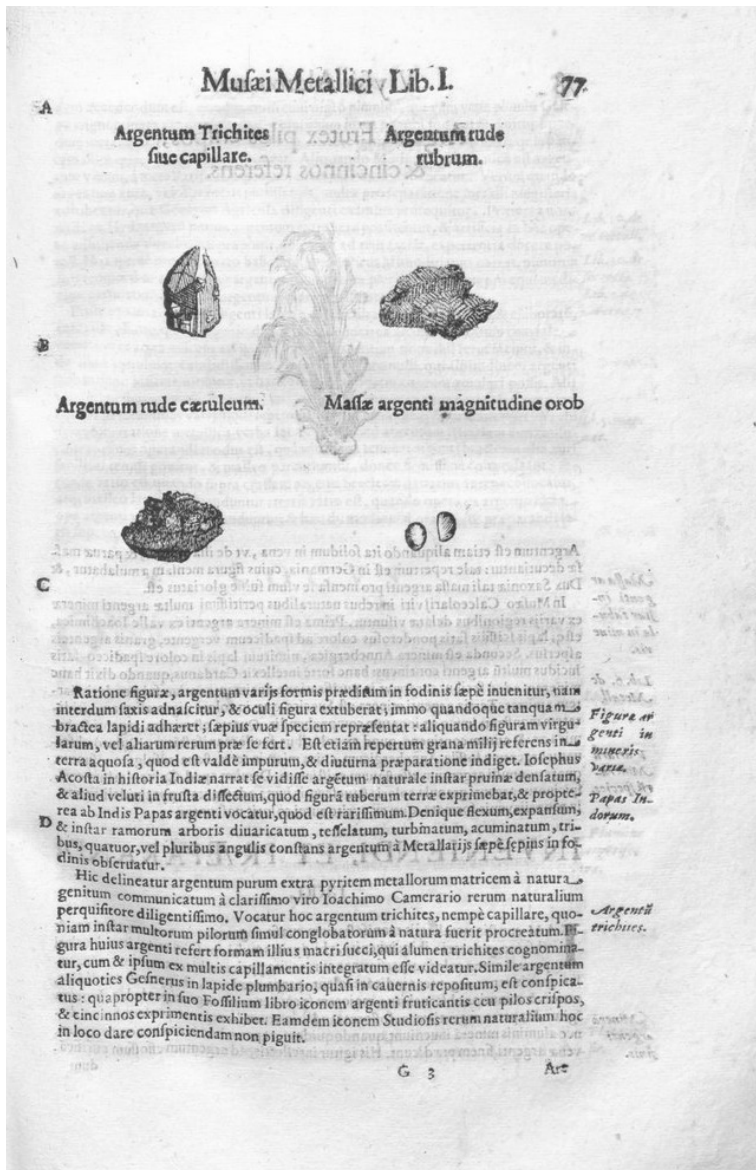 Musæi Metallici Lib. I. 77
A
Argentum Trichites
siue capillare.
Argentum rude
rubrum.
B
Argentum rude cæruleum.
Massæ argenti magnitudine orob
C
Ratione figuræ, argentum varijs formis præditum in fodinis sæpè inuenitur, nam
interdum saxis adnascitur, & oculi figura extuberat; immo quandoque tanquam
bractea lapidi adhæret; sæpius vuæ speciem repræsentat: aliquando figuram virgu-
larum, vel aliarum rerum præ se fert. Est etiam repertum grana milij referens in
terra aquosa, quod est valdè impurum, & diuturna præparatione indiget. Iosephus
Acosta in historia Indiæ narrat se vidisse argētum naturale instar pruinæ densatum,
& aliud veluti in frusta dissectum, quod figurā tuberum terræ exprimebat, & propte-
rea ab Indis Papas argenti vocatur, quod est rarissimum. Denique flexum, expansum,
& instar ramorum arboris diuaricatum, tesselatum, turbinatum, acuminatum, tri-
bus, quatuor, vel pluribus angulis constans argentum à Metallarijs sæpè sepius in fo-
dinis obseruatur.
Figuræ ar
genti in
mineris
variæ.
Papas In-
dorum.
D
Hic delineatur argentum purum extra pyritem metallorum matricem à natura
genitum communicatum à clarissimo viro Ioachimo Camerario rerum naturalium
perquisitore diligentissimo. Vocatur hoc argentum trichites, nempè capillare, quo-
niam instar multorum pilorum simul conglobatorum à natura fuerit procreatum. Fi-
gura huius argenti refert formam illius macri succi, qui alumen trichites cognomina-
tur, cum & ipsum ex multis capillamentis integratum esse videatur. Simile argentum
aliquoties Gesnerus in lapide plumbario, quasi in cauernis repositum, est conspica-
tus: quapropter in suo Fossilium libro iconem argenti fruticantis ceu pilos crispos,
& cincinnos exprimentis exhibet. Eamdem iconem Studiosis rerum naturalium hoc
in loco dare conspiciendam non piguit.
Argentū
trichites.
G 3 Ar-